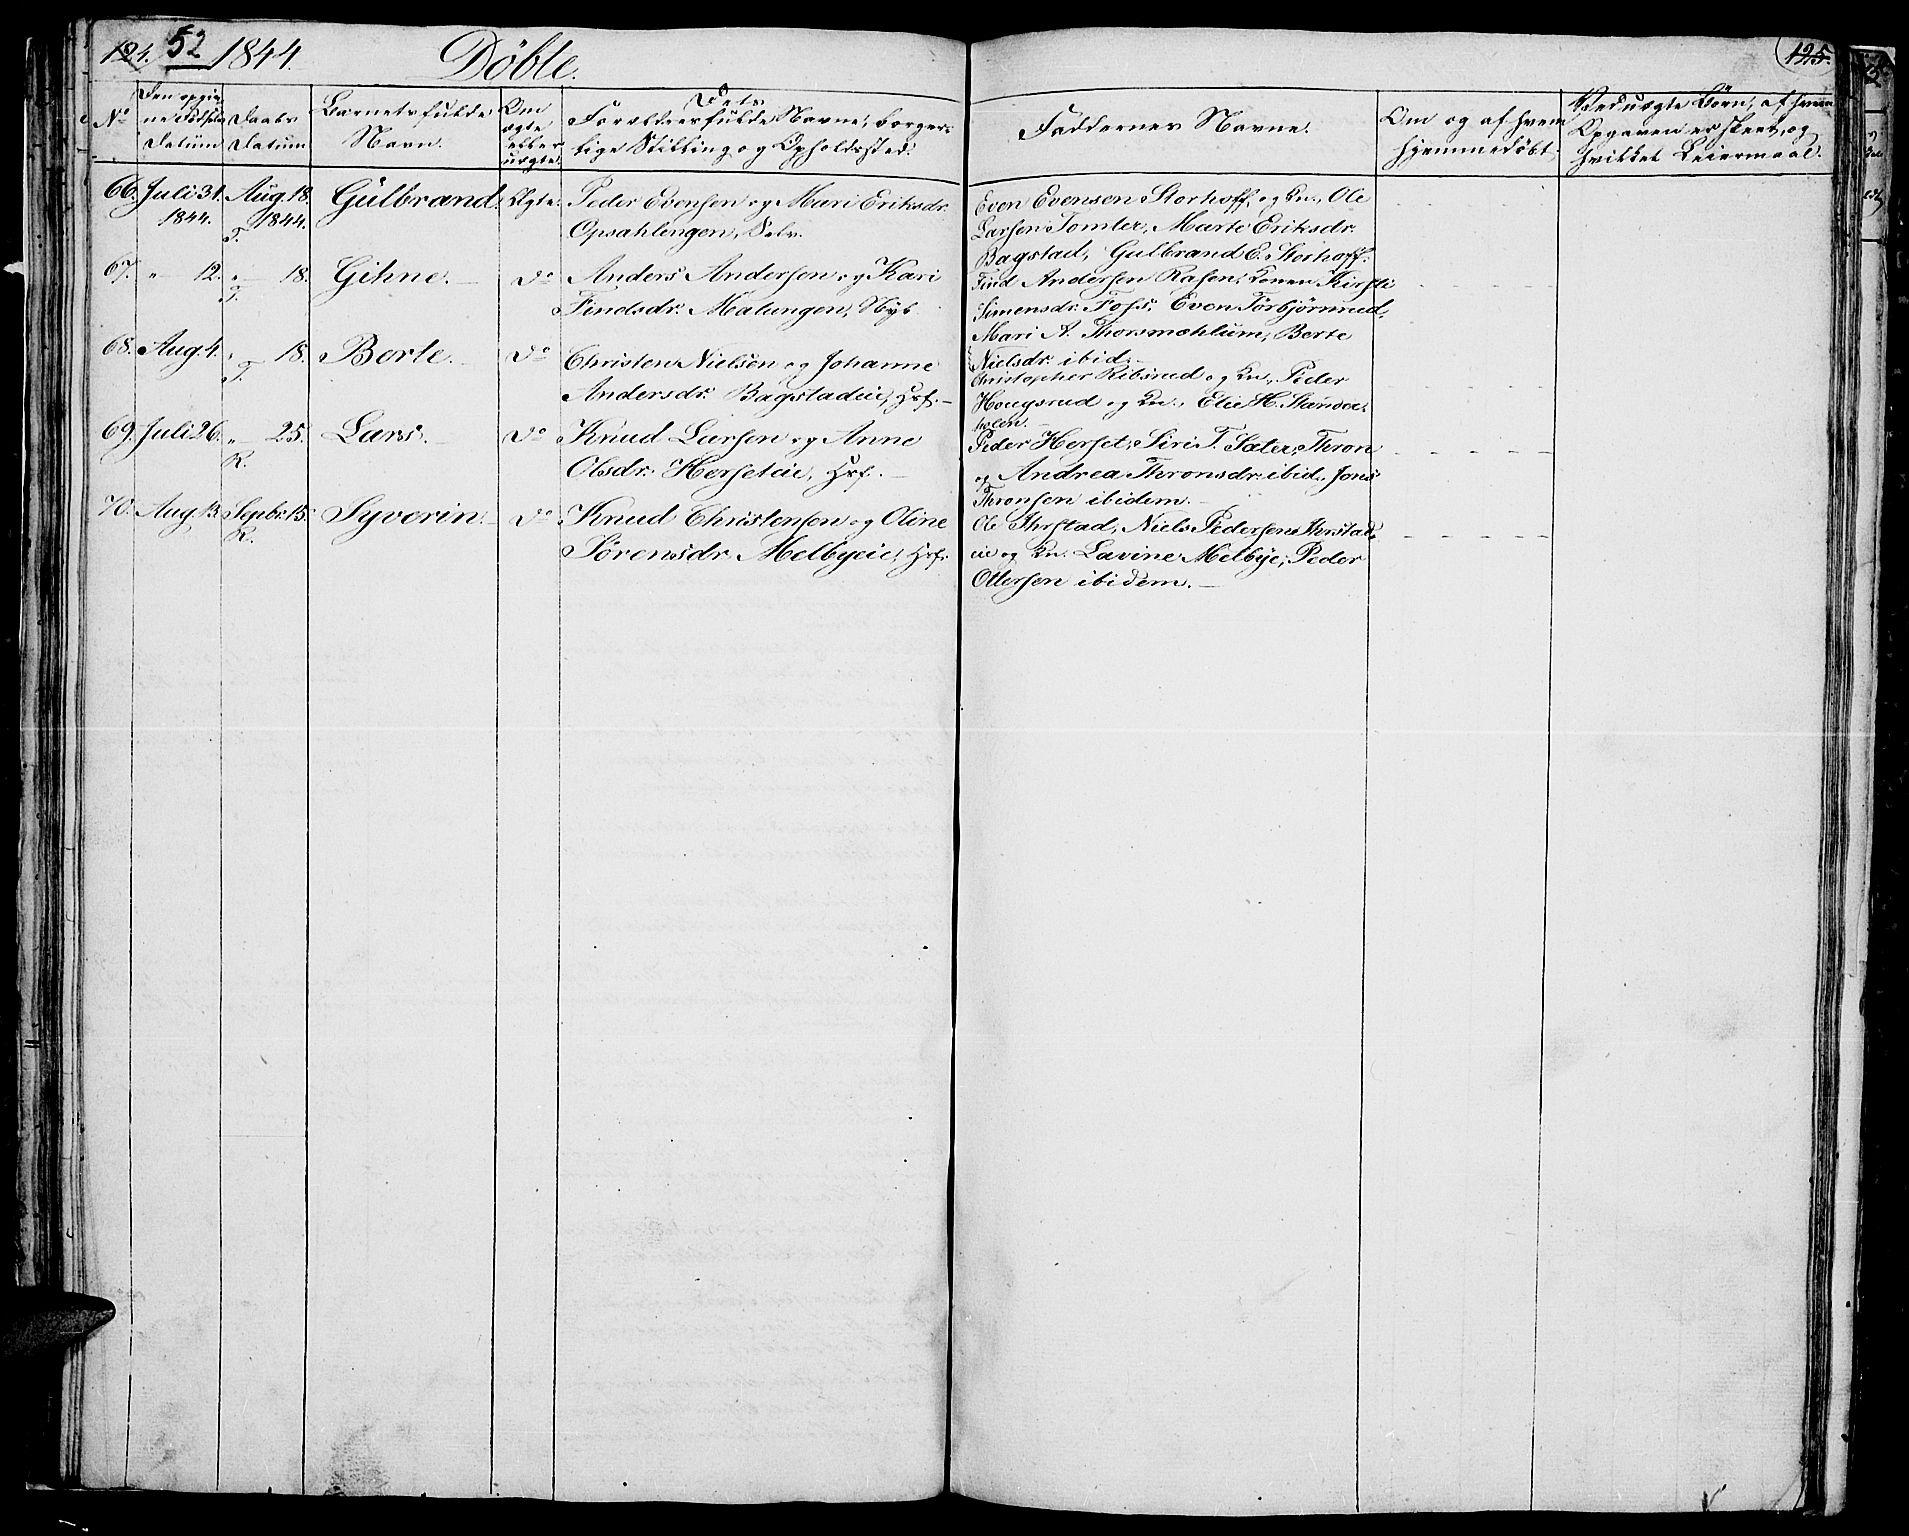 124. 52 1844. Döbte. 125.
No
Den opgivne Fødsels Datum
Daabs Datum
Barnets fulde Navn.
Om ægte eller uægte
Dets Forældres fulde Navne, borgerlige Stilling og Opholdssted.
Faddernes Navne.
Om og af hvem hjemmedøbt.
Ved uægte Börn, af hvem Opgaven er skeet, og hvilket Leiermaal.
66. Juli 31. Aug. 18. Gülbrand. Ægte. Peder Evensen og Mari Eriksdr.
1844. T. 1844. Opsahlengen, Selv.
Even Evensen Storhoff, og Kn., Ole
Larsen Tomter, Marte Eriksdr.
Bagstad, Gulbrand E. Storhoff.
67. " 12. " 18. Gihne. do Anders Andersen og Kari
T. Findsdr. Malungen, Nyb.
Find Andersen Rasen, Konen Kirsti
Simensdr. Foss, Even Torbjörnrud,
Mari A. Thorsmæhlum, Berte
Nielsdr. ibid.
68. Aug. 4. " 18. Berte. do Christen Nielsen og Johanne
T. Andersdr. Bagstadeie, Hsf.
Christopher Ribsrud og Kn., Peder
Hougsrud og Kn., Elie H. Stander-
holen.
69. Juli 26. " 25. Lars. do Knud Larsen og Anne
R. Olsdr. Herseteie, Hsf.
Peder Herset, Siri T. Sater, Thron
og Andrea Thronsdr. ibid., Jens
Thronsen ibidem.
70. Aug. 13. Septbr. 15. Syverin. do Knud Christensen og Oline
R. Sörensdr. Melbyeie, Hsf.
Ole Thrstad, Niels Pedersen Thrstad-
eie og Kn. Lavine Melbye, Peder
Ottersen ibidem.